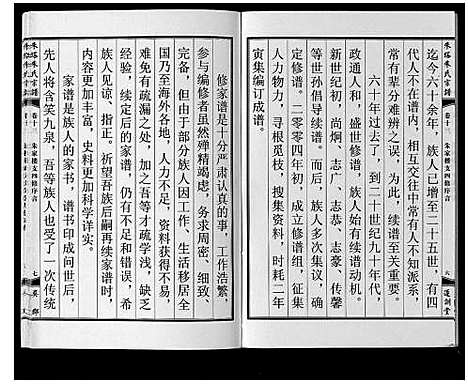 迄今六十余年，族人已增至二十五世，有四
代人不在谱内，相互交往中常有人不知派系，
常有辈分难辨之误，为此，续谱至关重要。
六十年过去了，到二十世纪九十年代，
政通人和，盛世修谱，族人始有续谱动机。
新世纪初，尚炯、志广、志恭、志豪、传馨
等世孙倡导续谱。而后，族人多次集议，确
定修谱。二零零四年初，成立修谱组，投入
人力物力，寻根觅枝，搜集资料，时耗二年
寅集编订成谱。
修家谱是十分严肃认真的事，工作浩繁，
参与编修者虽然殚精竭虑，务求周密、细致、
完备，但由于部分族人因工作、生活移居全
国乃至海外各地，人力不支，资料获得不易，
难免有疏漏之处，加之吾等才疏学浅，缺乏
经验，续定后的家谱，仍有不足和错误，希
族人见谅、指正。祈望吾族后嗣再续家谱时，
内容更加丰富，史料更加科学详实。
家谱是族人的家书，谱书印成问世后，
先人将含笑九泉，吾等族人也受了一次传统
朱塔朱氏宗谱
卷十
朱家楼支四修序言
七